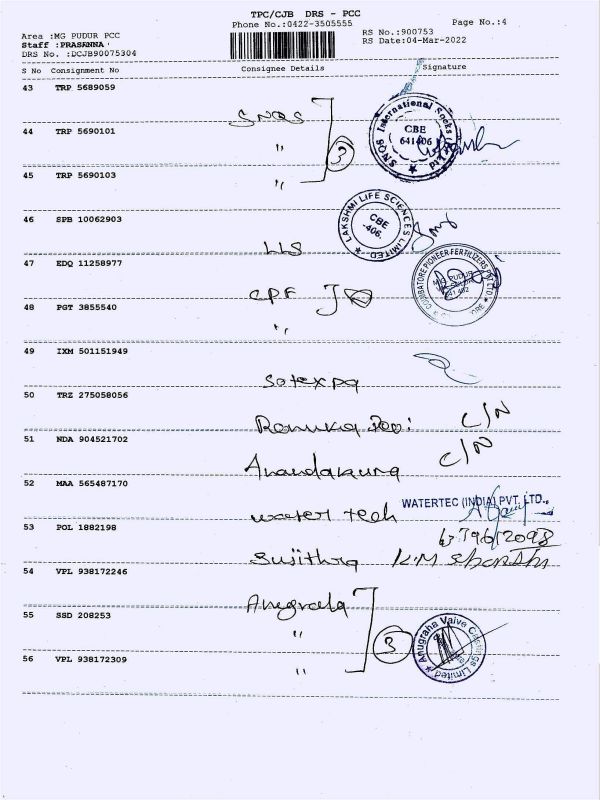 TPC/CJB DRS - PCC
Phone No.:0422-3505555
Page No.:4
Area :MG PUDUR PCC
RS No.:900753
Staff :PRASANNA
RS Date:04-Mar-2022
DRS No. :DCJB90075304
S No Consignment No Consignee Details Signature
43 TRP 5689059
SNQS
SNQS International Socks Pvt Ltd
CBE
641406
44 TRP 5690101
"
3
45 TRP 5690103
"
46 SPB 10062903
LLS
LAKSHMI LIFE SCIENCES LIMITED
CBE
-406.
47 EDQ 11258977
CPF
COIMBATORE PIONEER FERTILIZERS PVT LTD
48 PGT 3855540
"
49 IXM 501151949
Sotexpa
50 TRZ 275058056
Renuka Devi C/N
51 NDA 904521702
Anandakuma C/N
52 MAA 565487170
water tech
WATERTEC (INDIA) PVT. LTD.,
53 POL 1882198
Sujithra
54 VPL 938172246
Anugraha
55 SSD 208253
"
3
Anugraha Valve Castings Limited
56 VPL 938172309
"